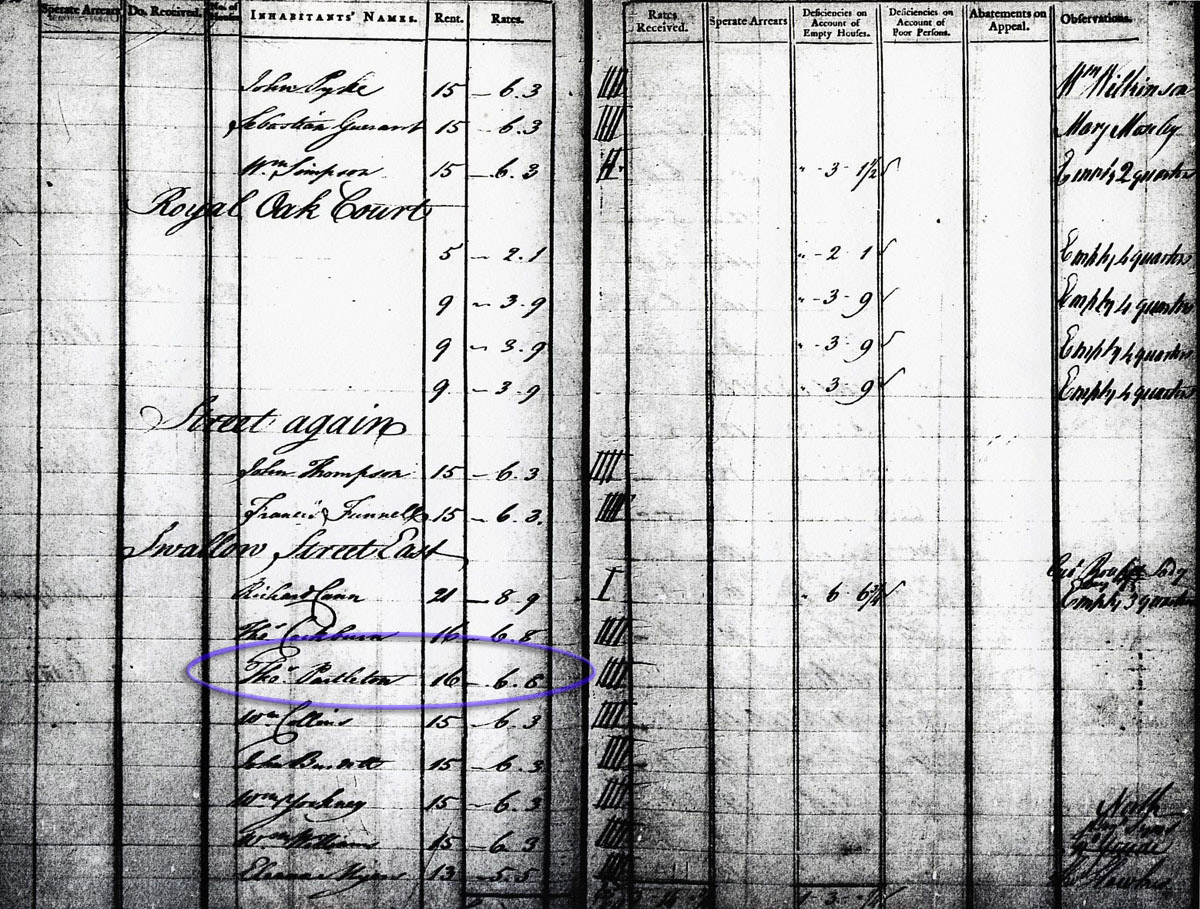 Sperate Arrears Do. Received. No. of Houses INHABITANTS' NAMES. Rent. Rates. Rates Received. Sperate Arrears Deficiencies on Account of Empty Houses. Deficiencies on Account of Poor Persons. Abatements on Appeal. Observations.
John Pyke 15 - 6. 3 Wm Wilkinson
Sebastian 15 - 6. 3 Mary
Wm Simpson 15 - 6. 3 " - 3 - 1½ Empty 2 quarters
Royal Oak Court
5 - 2. 1 " - 2 1 Empty 4 quarters
9 - 3. 9 " - 3 - 9 Empty 4 quarters
9 - 3. 9 " - 3 9 Empty 4 quarters
9 - 3. 9 " 3 9 Empty 4 quarters
Street again
John Thompson 15 - 6. 3
Francis Funnell 15 - 6. 3.
Swallow Street East
Richard Cann 21 - 8. 9 " 6 6¾ Empty 3 quarters
Thos. Cockburn 16 - 6. 8
Thos. Partleton 16 - 6. 8
Wm Collins 15 - 6. 3
John 15 - 6. 3
Wm 15 - 6. 3 North
Wm Williams 15 - 6. 3
Eleanor 13 - 5. 5